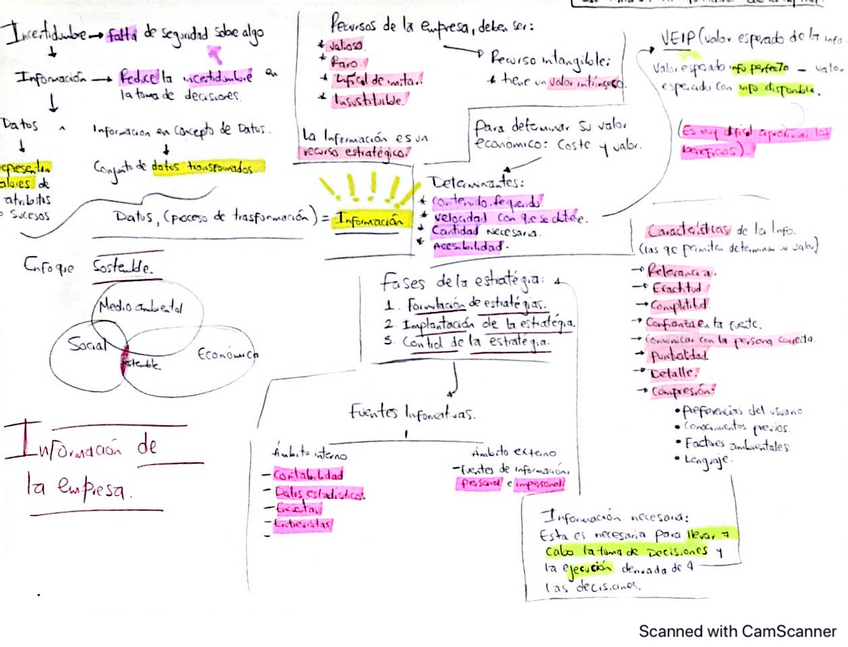 Incertidumbre → falta de seguridad sobe algo
Información → Reduce la incertidumbre en
la toma de decisiones.
Datos
Informacion en Concepto de Datos.
Conjunto de datos transformados
representan
valores de
atributos
o sucesos
Datos, (proceso de trasformación) = Información
Enfoque Sostenible.
Medio ambiental
Social
Económica
Sostenible.
Información de
la empresa.
Recursos de la empresa, deben ser:
Valioso
Raro.
Dificil de imitar.
Insustituible.
Recurso intangible:
tiene un valor intrínseco.
La Información es un
recurso estratégico.
Para determinar su valor
económico: Coste y valor.
Determinantes:
Contenido
Velocidad con que se obtiene.
Cantidad necesaria.
Accesibilidad.
VEIP (valor esperado de la info
Valor esperado info perfecta - valor
esperado con info disponible.
(Es muy dificil aproximar los
beneficios).
Características de la Info.
(Las qe permiten determinar su valor)
→ Relevancia.
→ Exactitud
→ Complitud
→ Confianza en la fuente.
→ Comunicar con la persona correcta.
→ Puntualidad
→ Detalle.
→ Compresión:
• Preferencias del usuario
• Conocimientos previos.
• Factores ambientales
• Lenguaje.
Fases de la estratégia:
1. Formulación de estratégias.
2. Implantación de la estratégia.
3. Control de la estrategia.
Fuentes Informativas.
Ámbito interno
- Contabilidad
- Datos estadísticos.
- Encuestas
- Entrevistas
-
Ámbito externo
- Fuentes de información
personal e impersonal
Información necesaria:
Esta es necesaria para llevar a
cabo la toma de Decisiones y
la ejecución derivada de
las decisiones.
Scanned with CamScanner